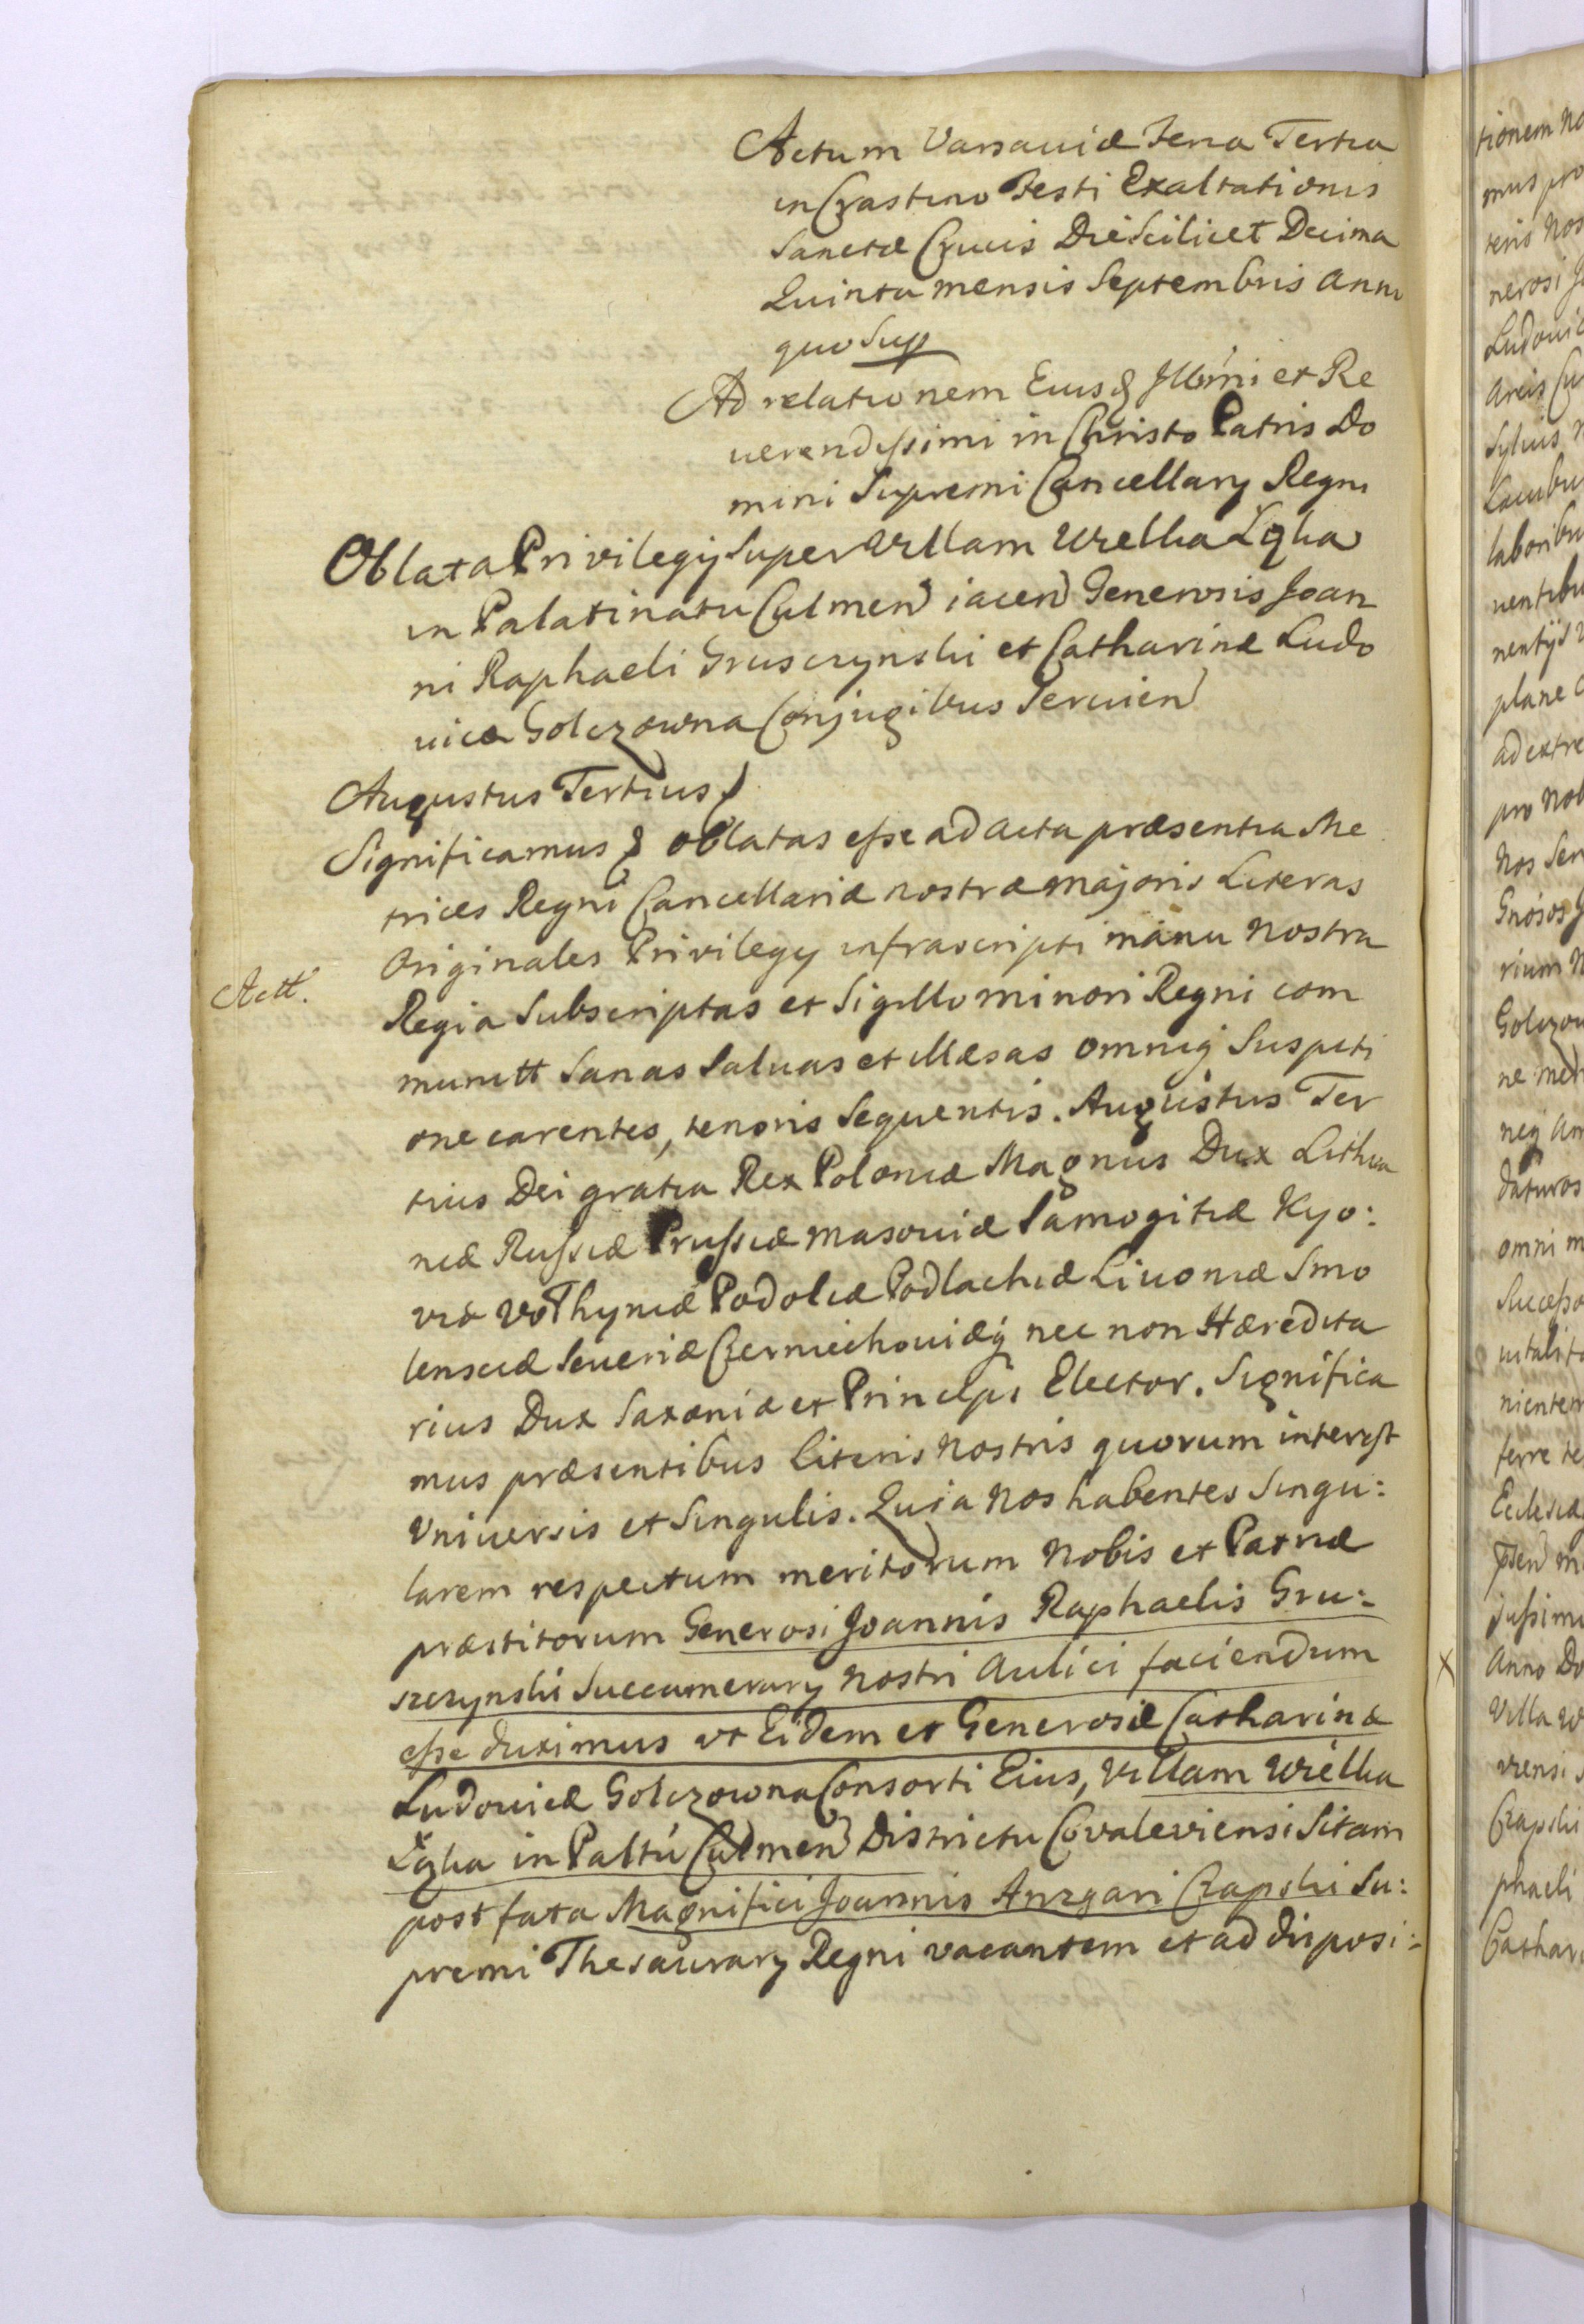 Actum Varsaviæ Feria Tertia
in Crastino Festi Exaltationis
Sanctæ Crucis Die Scilicet Decima
Quinta mensis Septembris Anni
quo Sup
Ad relationem Eiusd Illmi et Re
uerendissimi in Christo Patris Do
mini Supremi Cancellary Regni
Oblata Privilegij Super Villam Wielka Łąka
in Palatinatu Culmen iacen Generosis Joan
ni Raphaeli Grusczynski et Catharinæ Ludo
uicæ Golczowna Conjugibus Seruien
Augustus Tertius
Significamus & oblatas esse ad acta præsentia Me
trices Regni Cancellariæ nostræ majoris Literas
Originales Privilegy infrascripti manu nostra
Actt.
Regia Subscriptas et Sigillo minori Regni com
munitt Sanas Saluas et illæsas omniq Suspiti
one carentes, tenoris Sequentis. Augustus Ter
tius Dei gratia Rex Poloniæ Magnus Dux Lithua
niæ Russiæ Prussiæ Masouiæ Samogitiæ Kyo:
viæ Volhyniæ Podoliæ Podlachiæ Liuoniæ Smo
lensciæ Seueriæ Czerniechouiæq nec non Hæredita
rius Dux Saxoniæ et Princeps Elector. Significa
mus præsentibus Literis Nostris quorum interest
Vniuersis et Singulis. Quia Nos habentes Singu:
larem respectum meritorum Nobis et Patriæ
præstitorum Generosi Joannis Raphaelis Gru:
szczynski Succamerary Nostri Aulici faciendum
esse duximus vt Eidem et Generosæ Catharinæ
Ludouicæ Golczowna Consorti Eius, Villam Wielka
Łąka in Paltu Culmen Districtu Covaleviensi Sitam
post fata Magnifici Joannis Anzgari Czapski Su:
premi Thesaurary Regni vacantem et ad disposi:
tionem
mus pro
teris Nos
nerosi
Ludouic
areis
Syluis
Lacubu
laboribu
nentijs
plane
ad extre
pro Nob
Nos Ser
Gnosos
rium
Golczow
ne
neq
daturos
omni m
Successo
uitalit
nientem
ferre te
Ecclesiæ
jussimu
Anno Do
Villa W
Czapski
phaeli
Cathari